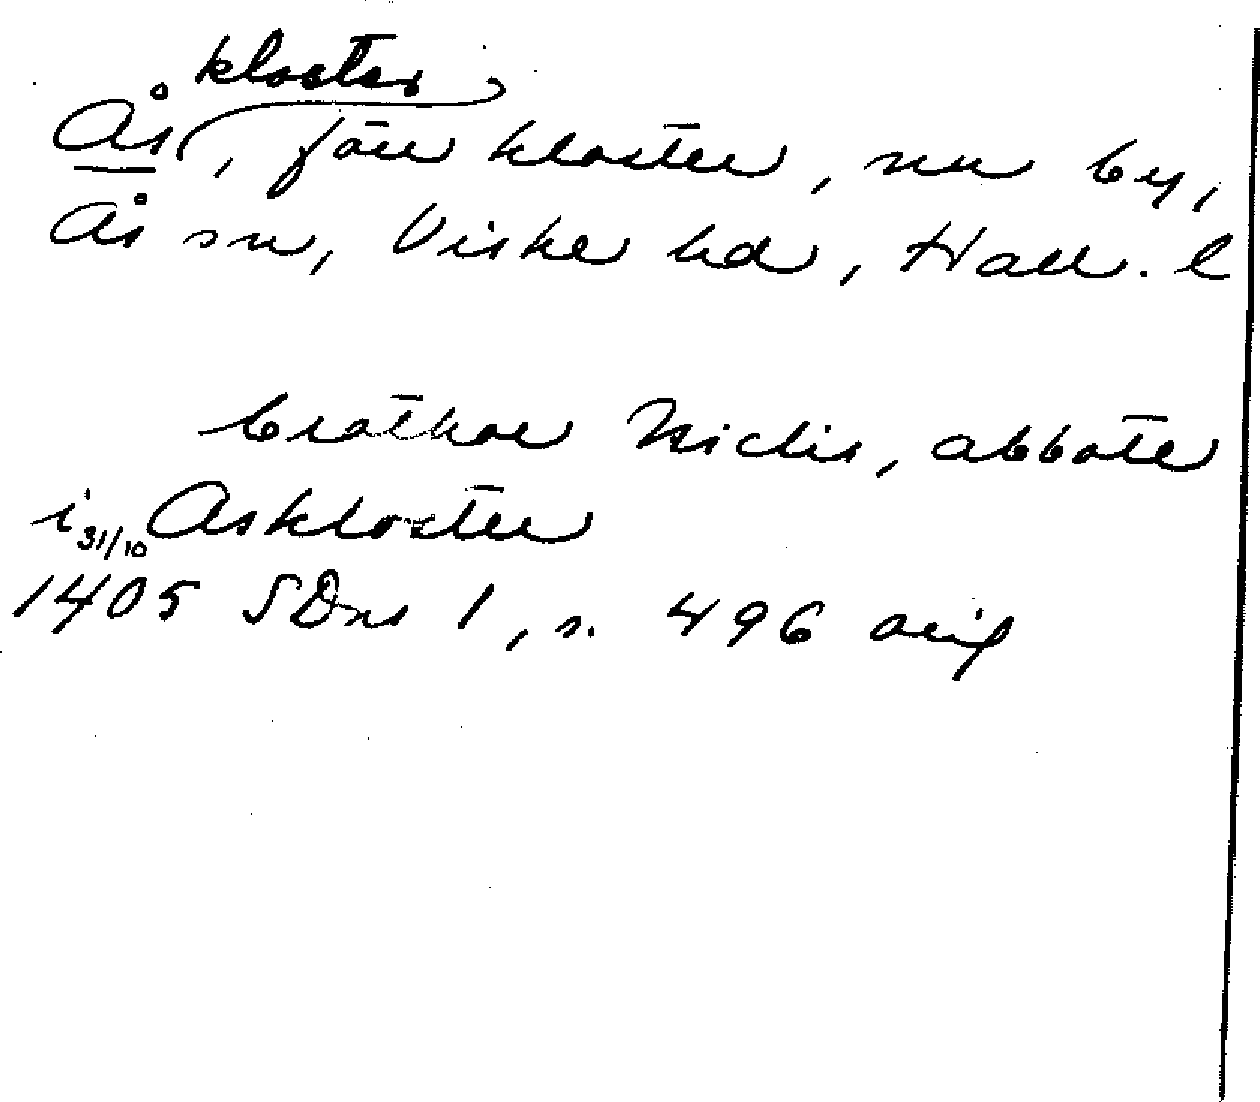 kloster
Ås, förr kloster, nu by,
Ås sn, Viske hd, Hall. l
brathær Niclis, abbote
i Askloster
31/10
1405 SDns 1, s. 496 orig